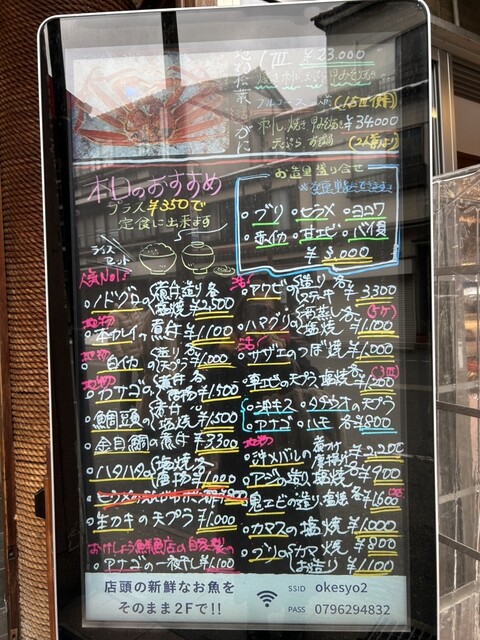 地松葉がに
1皿 ¥23,000
焼き 刺し
¥34,000
天ぷら
(2人前より)
お造り盛り合せ
・ブリ ・ヒラメ ・ヨコワ
・赤イカ ・甘エビ ・バイ貝
本日のおすすめ
プラス¥350で
定食に出来ます
ライス
セット
人気No.1
・ノドグロの 煮付 造り 各 塩焼 ¥2,500
地物
・本カレイの煮付 ¥1,100
地物
・白イカの 造り 各 天プラ ¥1,000
地物
・カサゴの 煮付 各 ¥1,500
・鯛頭の 煮付 各 塩焼 ¥1,500
・金目鯛の煮付 ¥3,300
・ハタハタの 塩焼 各 唐揚 ¥1,000
・生カキの天プラ ¥1,000
おけしょう鮮魚店の自家製の
・アナゴの一夜干し ¥1,100
活
・アワビの 造り 各 ステーキ ¥3,300
・ハマグリの 酒蒸し 各 塩焼 (5ケ) ¥1,100
活
・サザエのつぼ焼 ¥1,000
・車エビの天プラ 塩焼 各 (3匹) ¥1,200
・沖キス ・タチウオの天プラ
・アナゴ ・ハモ 各¥800
地物
・沖メバルの 煮付 唐揚 ¥2,200
・アジの造り 塩焼 各¥900
・鬼エビの造り 塩焼 各¥1,600
・カマスの塩焼 ¥1,000
・ブリの カマ焼 ¥800
お造り ¥1,100
店頭の新鮮なお魚を
そのまま2Fで!!
SSID okesyo2
PASS 0796294832